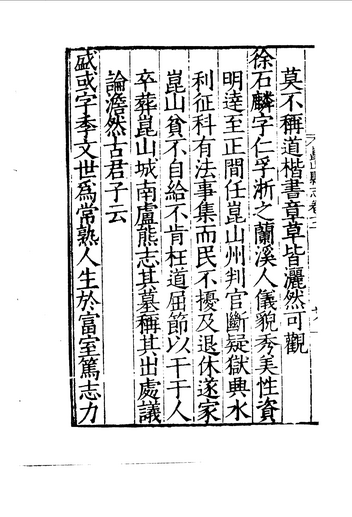 莫不稱道楷書章草皆灑然可觀
徐石麟字仁孚浙之蘭溪人儀貌秀美性資
明達至正間任崑山州判官斷疑獄興水
利征科有法事集而民不擾及退休遂家
崑山貧不自給不肯枉道屈節以干于人
卒葬崑山城南盧熊志其墓稱其出處議
論澹然古君子云
盛或字季文世爲常熟人生於富室篤志力